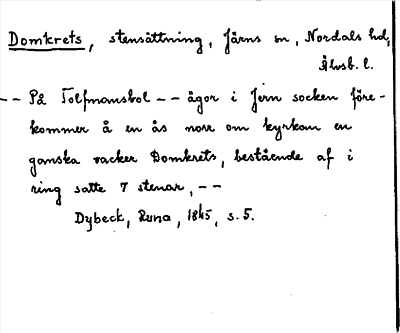 Domkrets, stensättning, Järns sn, Nordals hd,
Älvsb. l.
-- På Tolfmansbol -- ägor i Jern socken före-
kommer å en ås norr om kyrkan en
ganska vacker Domkrets, bestående af i
ring satte 7 stenar, --
Dybeck, Runa, 1845, s. 5.